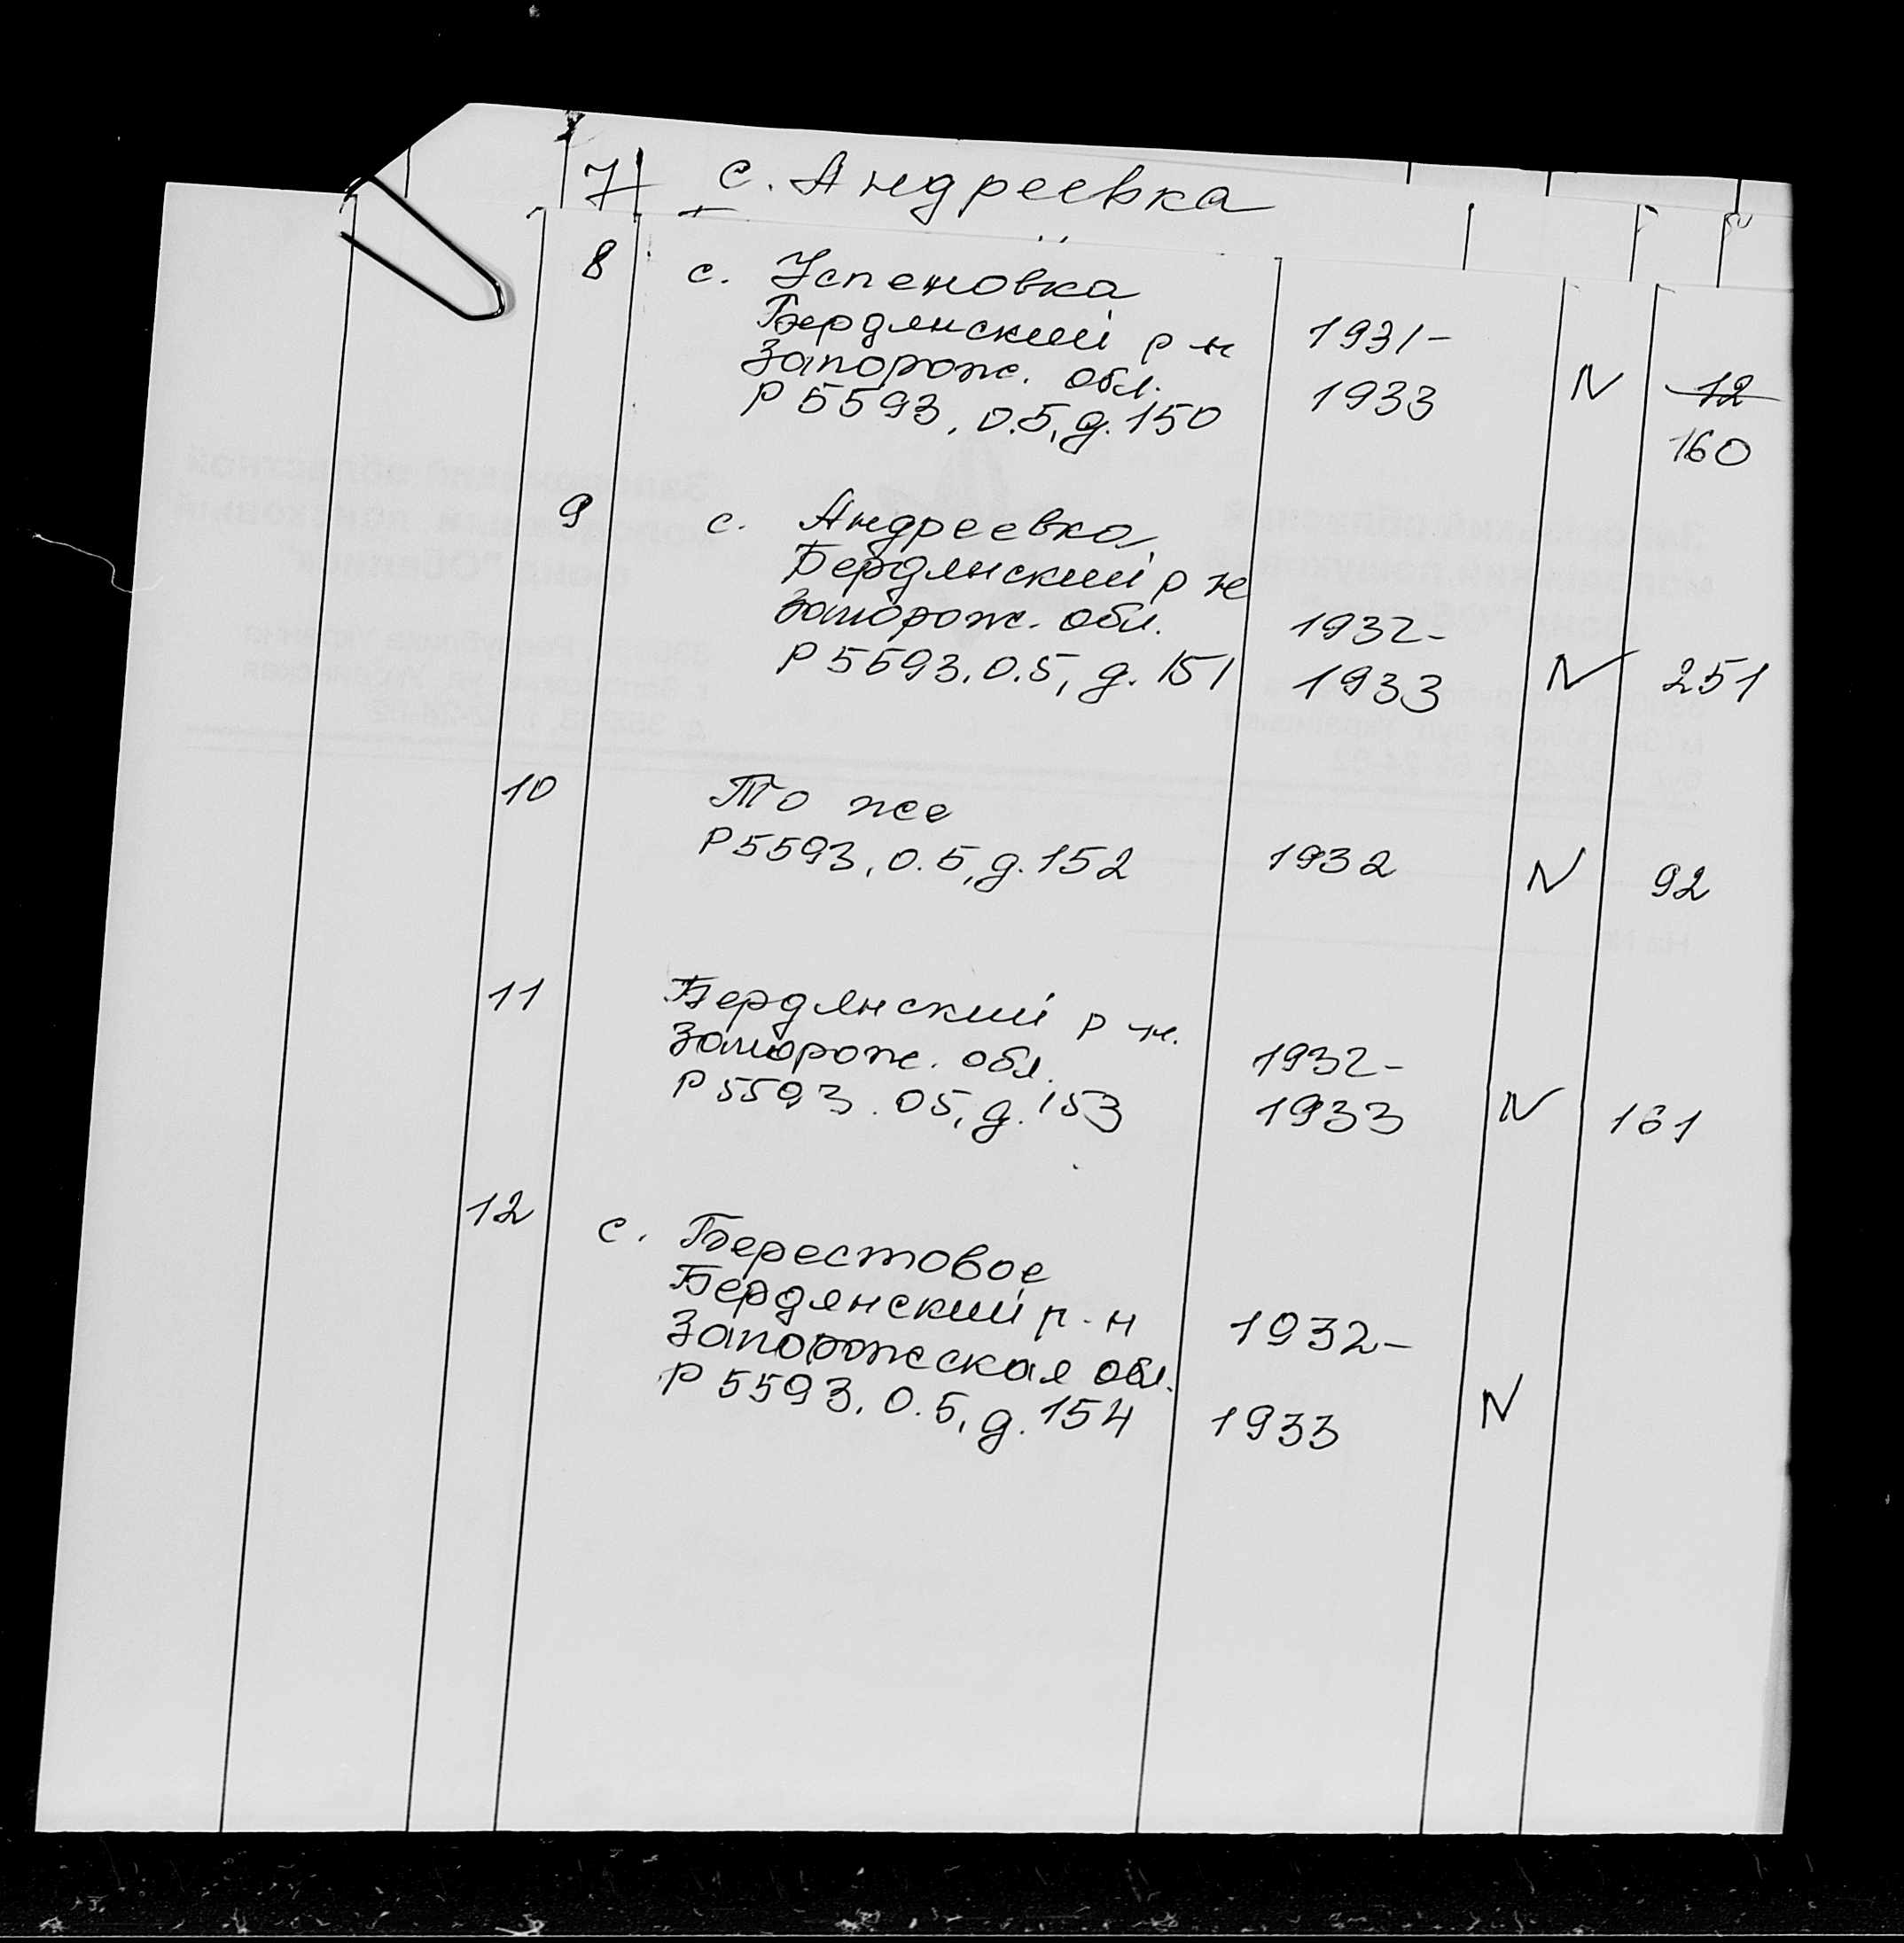 7 с. Андреевка
8 с. Успеновка
Бердянский р-н
Запорож. обл.
Р5593, о.5, д.150
1931-
1933
N
12
160
9 с. Андреевка
Бердянский р-н
Запорож. обл.
Р5593, о.5, д. 151
1932-
1933
N
251
10 То же
Р5593, о.5, д.152
1932
N
92
11 Бердянский р-н.
Запорож. обл.
Р5593. о5, д. 153
1932-
1933
N
161
12 с. Берестовое
Бердянский р-н
Запорожская обл.
Р5593, о.5, д. 154
1932-
1933
N